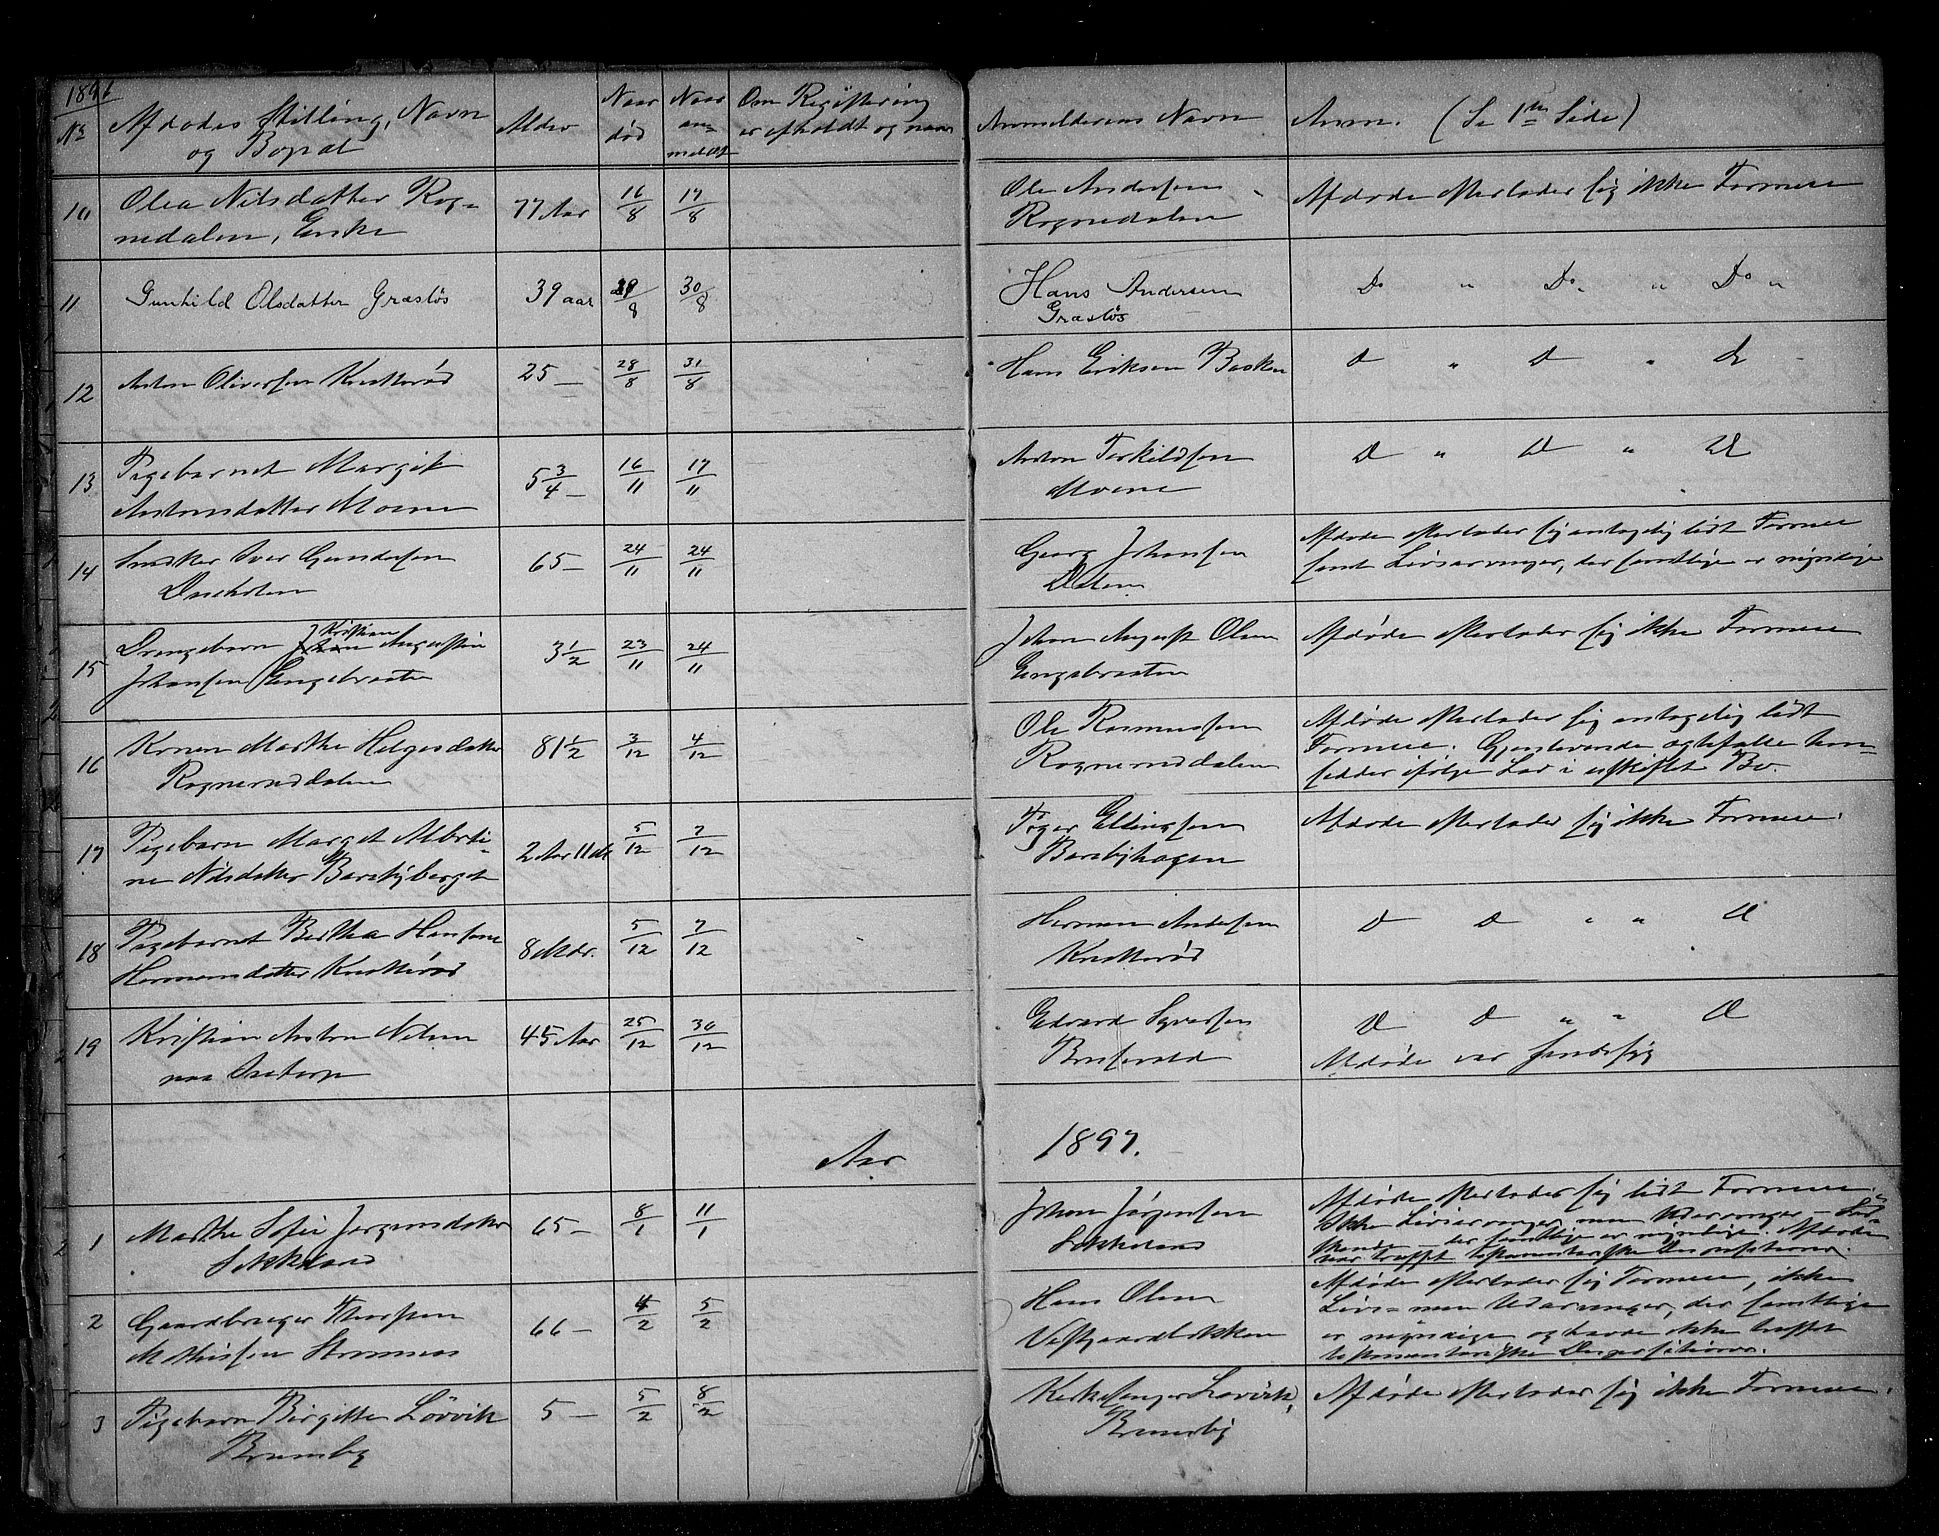 1896
No
Afdødes Stilling, Navn
og Bopæl
Alder
Naar
død
Naar
an-
meldt
Om Registrering
er afholdt og naar
Anmelderens Navn
Anm. (Se 1ste Side)
10
Olea Nilsdatter Rog-
nedalen, Enke
77 Aar
16/8
17/8
Ole Andersen
Rognedalen
Afdøde efterlader sig ikke Formue
11
Gunhild Olsdatter Græsløs
39 aar
29/8
30/8
Hans Andersen
Græsløs
Do " Do " Do "
12
Anton Oliversen Knatterød
25 —
28/8
31/8
Hans Eriksen Bakken
D " D " D
13
Pigebarnet Margit
Antonsdatter Moene
5 3/4 —
16/11
17/11
Anton Terkildsen
Moene
D " D " D
14
Snedker Iver Gundersen
65 —
24/11
24/11
Georg Johansen
Dalen
Afdøde efterlader sig antagelig lidt Formue
samt Livsarvinger, der samtlige er myndige
15
Drengebarn Johan Kristian Augustin
Johansen Engebraaten
3 1/2
23/11
24/11
Johan August Olsen
Engebraaten
Afdøde efterlader sig ikke Formue
16
Konen Marthe Helgesdatter
Rognerøddalen
81 1/2
3/12
4/12
Ole Rasmussen
Rognerøddalen
Afdøde efterlader sig antagelig lidt
Formue. Gjenlevende Ægtefælle hen-
sidder ifølge Lov i uskiftet Bo.
17
Pigebarn Margot Alberti-
ne Nilsdatter Barstybergt
2 Aar 11 M
5/12
7/12
Ellingsen
Afdøde efterlader sig ikke Formue.
18
Pigebarnet Bertha Hansine
Hermansdatter Knatterød
8 Mdr.
5/12
7/12
Herman Andersen
Knatterød
D D " " D
19
Kristian Anton Nilsen
45 Aar
25/12
30/12
Edvard Syversen
D D " " D
Afdøde var sindssyg
Aar
1897.
1
Marthe Sofie Jørgensdatter
Sekkeland
65 —
8/1
11/1
Johan Jørgensen
Sekkeland
Afdøde efterlader sig lidt Formue.
Ikke Livsarvinger men Udarvinger — Søds-
kende — der samtlige er myndige. Afdøde
har truffet testamentariske Dispositioner.
2
Gaardbruger Thorsten
Mathisen Strømnes
66 —
4/2
5/2
Hans Olsen
Vestgaardløkken
Afdøde efterlader sig Formue, ikke
Livs- men Udarvinger, der samtlige
er myndige og havde ikke truffet
testamentariske Dispositioner.
3
Pigebarn Birgitte Løvvik
Brunsby
5 —
5/2
8/2
Kirkesanger Løvvik,
Brunsby
Afdøde efterlader sig ikke Formue.